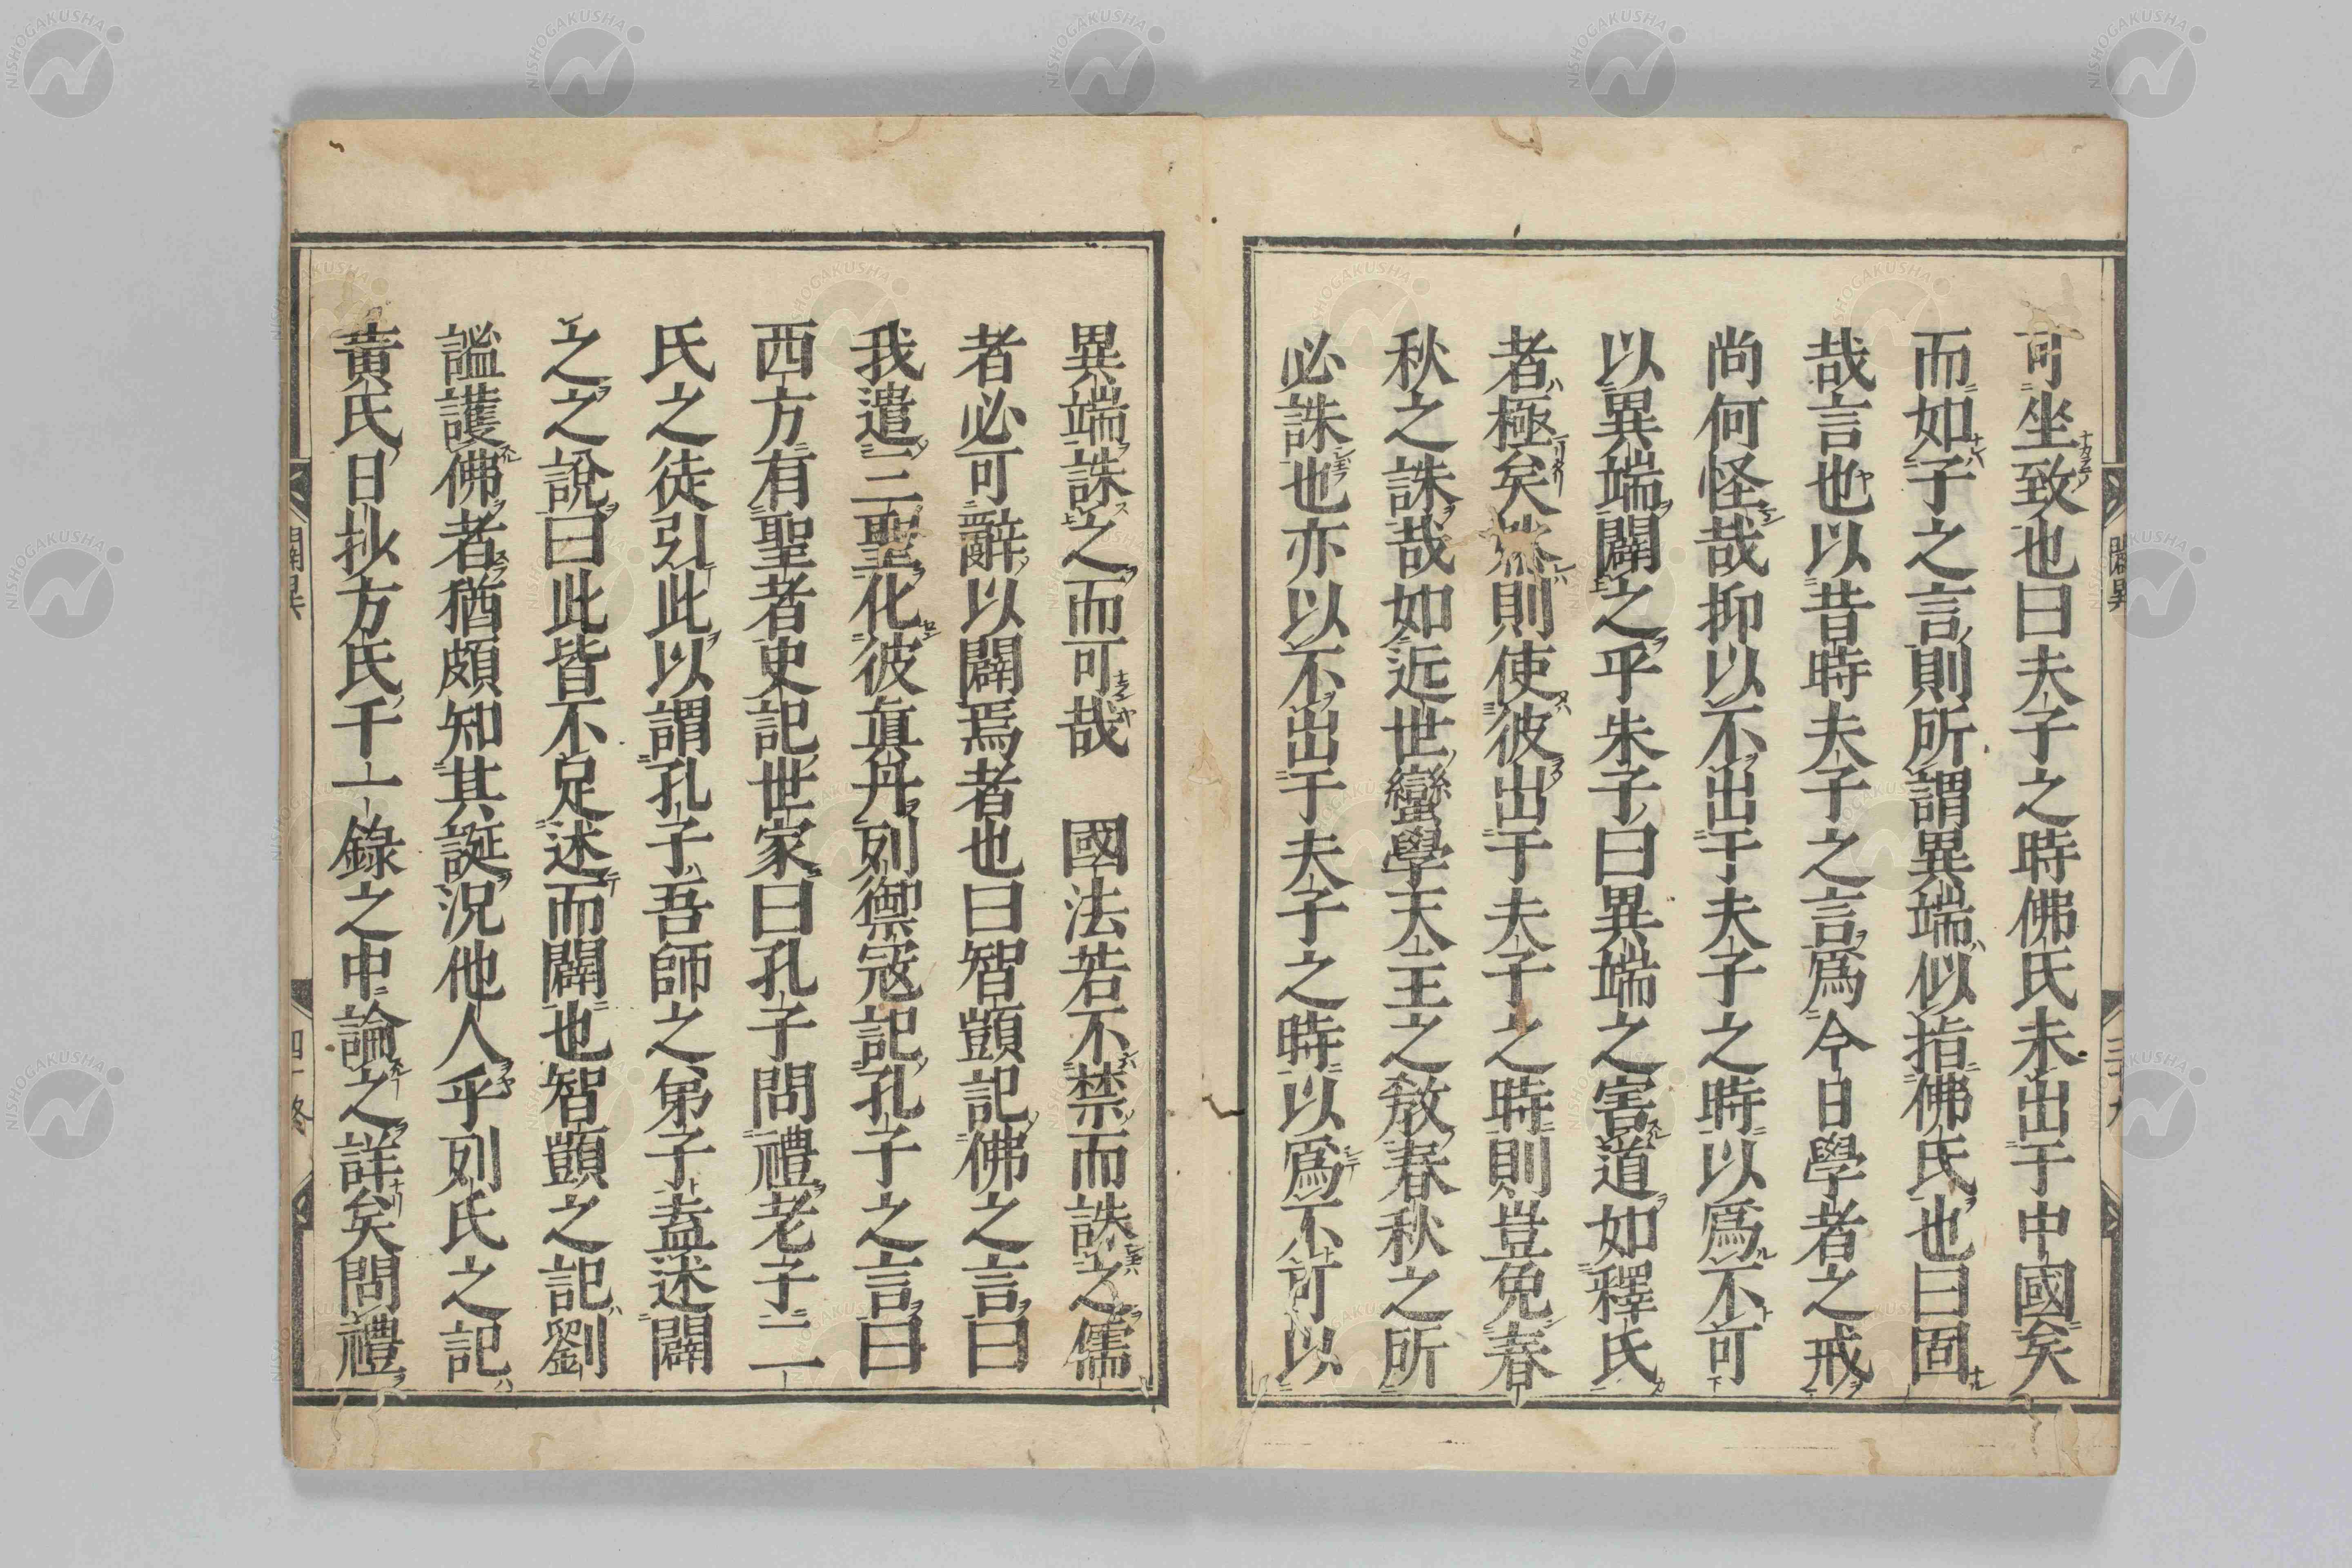 可坐致也曰夫子之時佛氏未出于中國矣
而如子之言則所謂異端似指佛氏也曰固
哉言也以昔時夫子之言爲今日學者之戒
尚何怪哉抑以不出于夫子之時以爲不可
以異端闢之乎朱子曰異端之害道如釋氏
者極矣然則使彼出于夫子之時則豈免春
秋之誅哉如近世蠻學天主之敎春秋之所
必誅也亦以不出于夫子之時以爲不可以
闢異
三十九
異端誅之而可哉 國法若不禁而誅之儒
者必可辭以闢焉者也曰智顗記佛之言曰
我遣三聖化彼眞丹列禦冦記孔子之言曰
西方有聖者史記世家曰孔子問禮老子二
氏之徒引此以謂孔子吾師之弟子盖迷闢
之之說曰此皆不足述而闢也智顗之記劉
謐護佛者猶頗知其誕況他人乎列氏之記
黄氏日抄方氏千一錄之中論之詳矣問禮
闢異
四十終
NISHOGAKUSHA